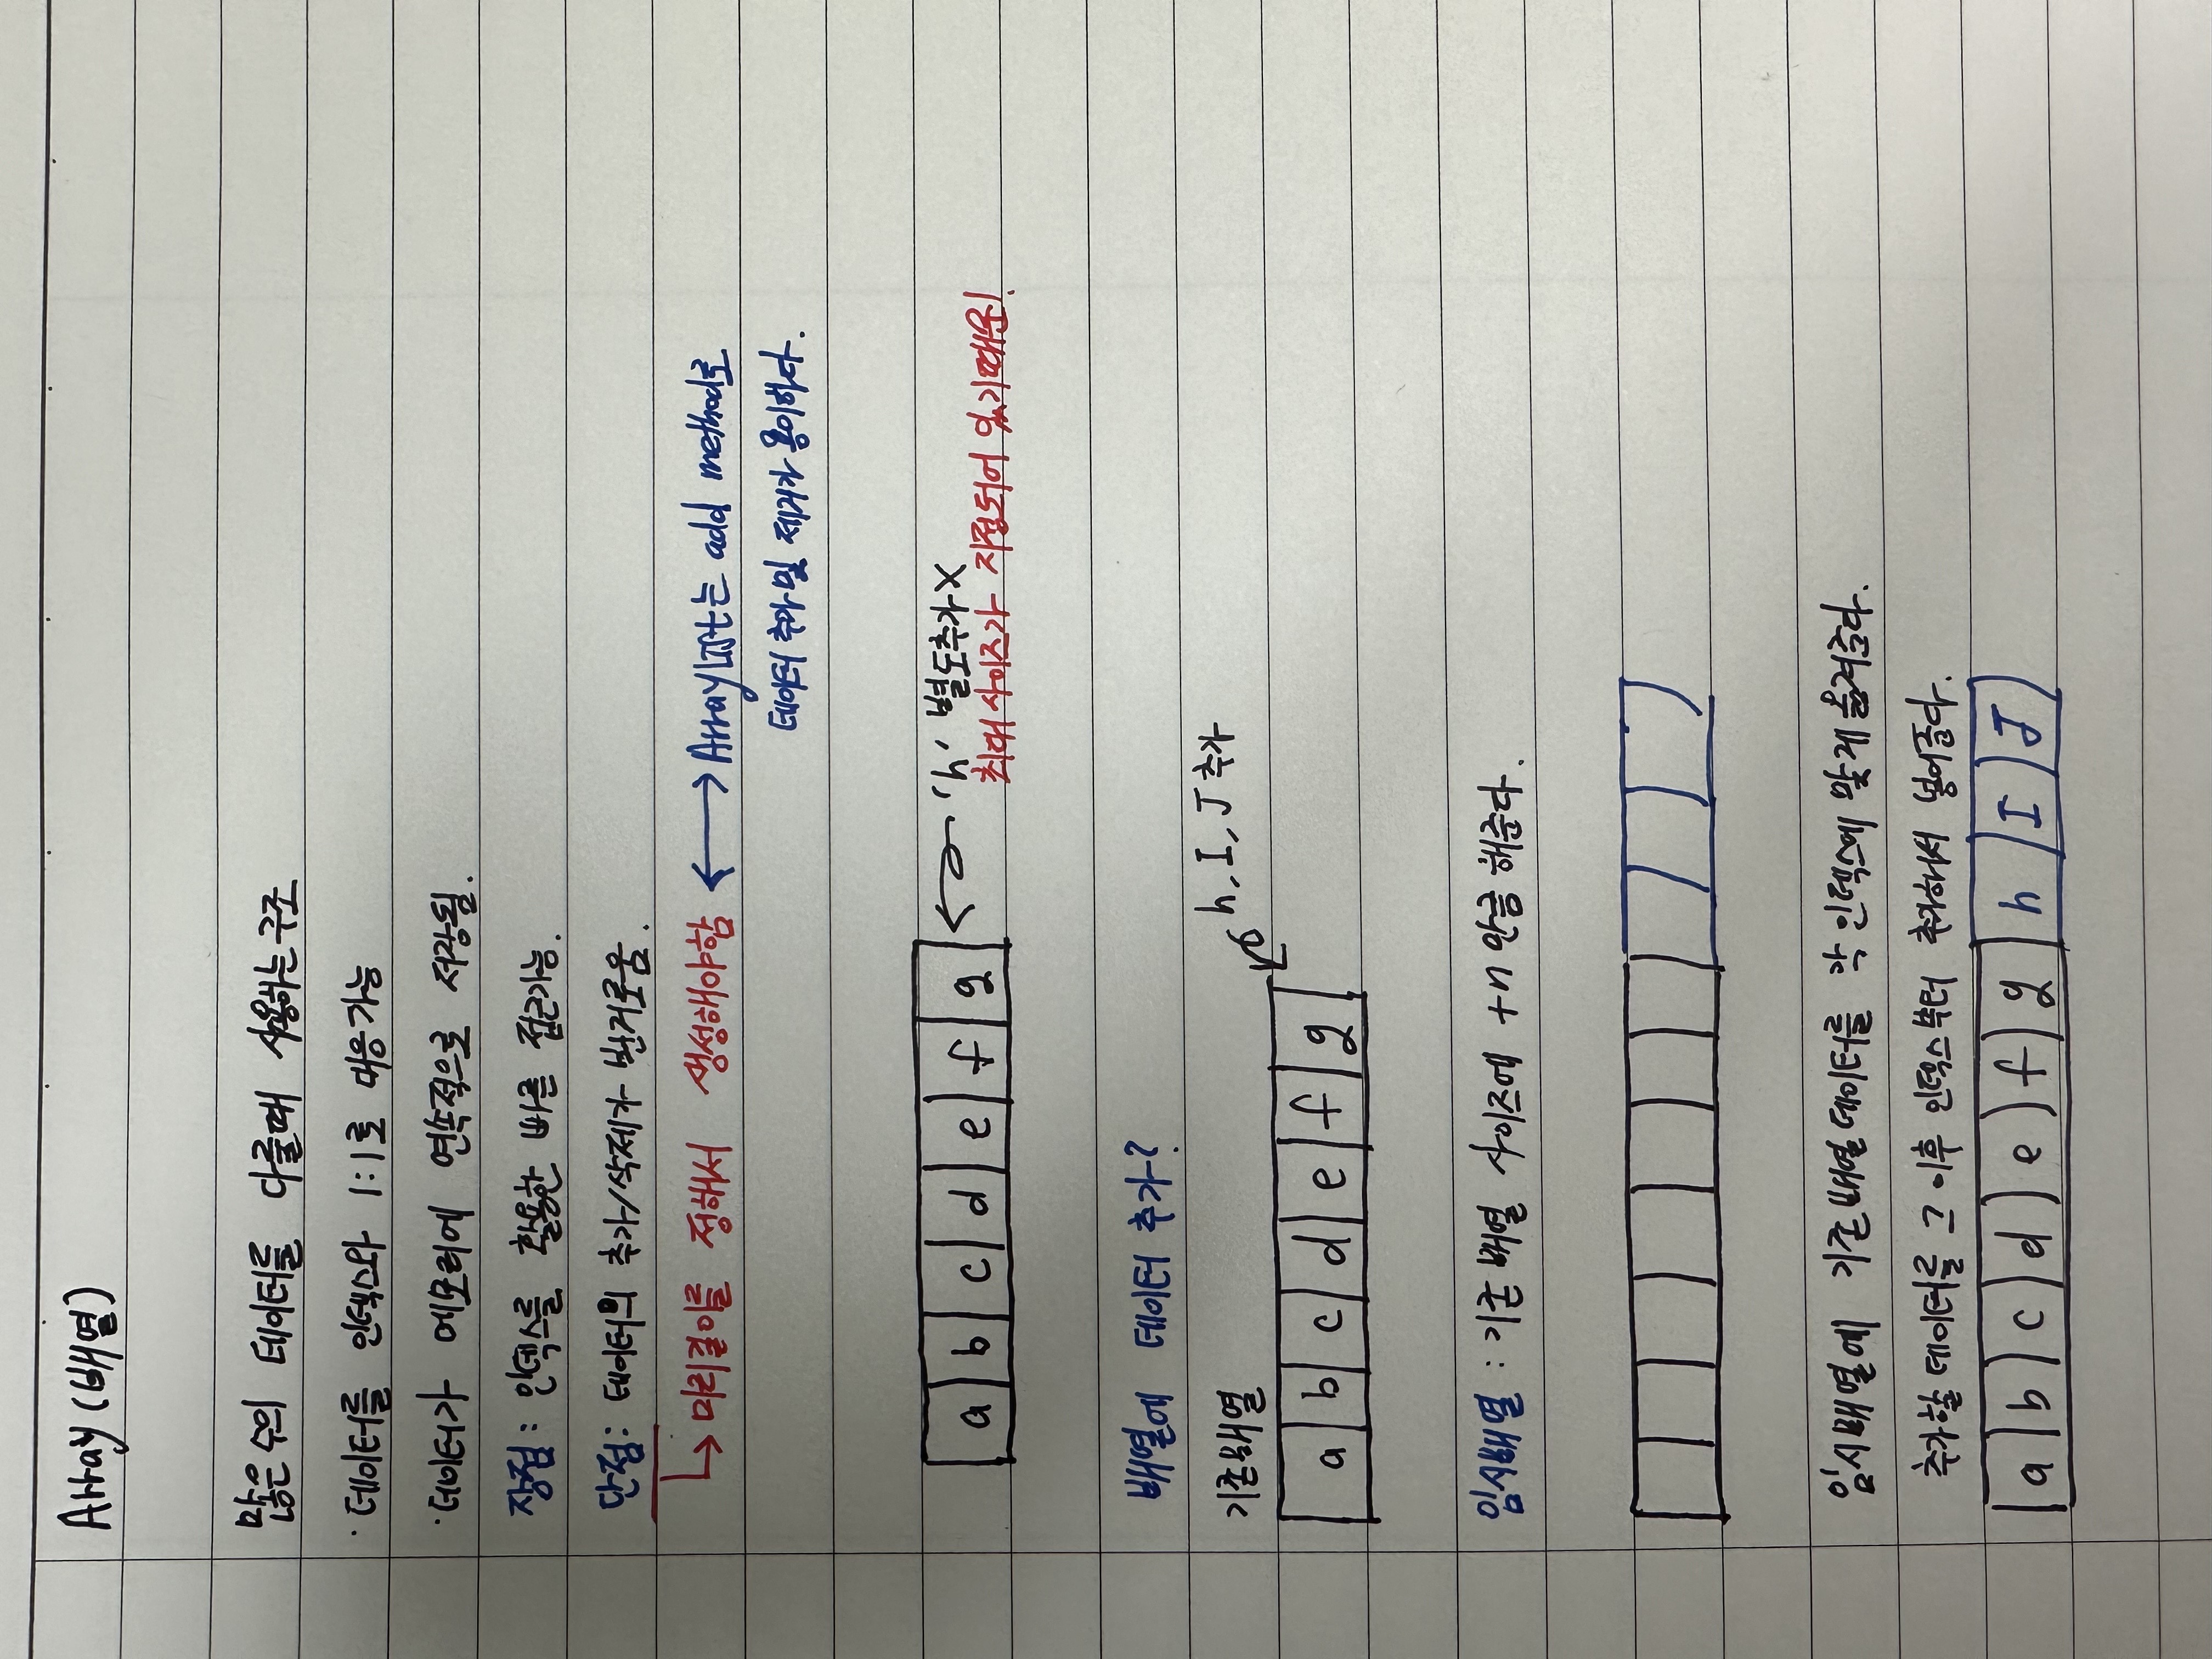 Array (배열)
많은 수의 데이터를 다룰때 사용하는 구조
· 데이터를 인덱스와 1:1로 대응가능
· 데이터가 메모리에 연속적으로 저장됨.
장점: 인덱스를 활용한 빠른 접근가능.
단점: 데이터의 추가/삭제가 번거로움.
미리길이를 정해서 생성해야함 ArrayList는 add method로
데이터 추가 및 제거가 용이하다.
a b c d e f g 'h' 별도추가 X
최대사이즈가 지정되어 있기때문!
배열에 데이터 추가?
기존배열 h, I, J 추가
a b c d e f g
임시배열 : 기존 배열 사이즈에 +n 만큼 해준다.
임시배열에 기존배열 데이터를 각 인덱스에 맞게 옮겨준다.
추가할 데이터를 그 이후 인덱스부터 추가해서 넣어준다.
a b c d e f g h I J